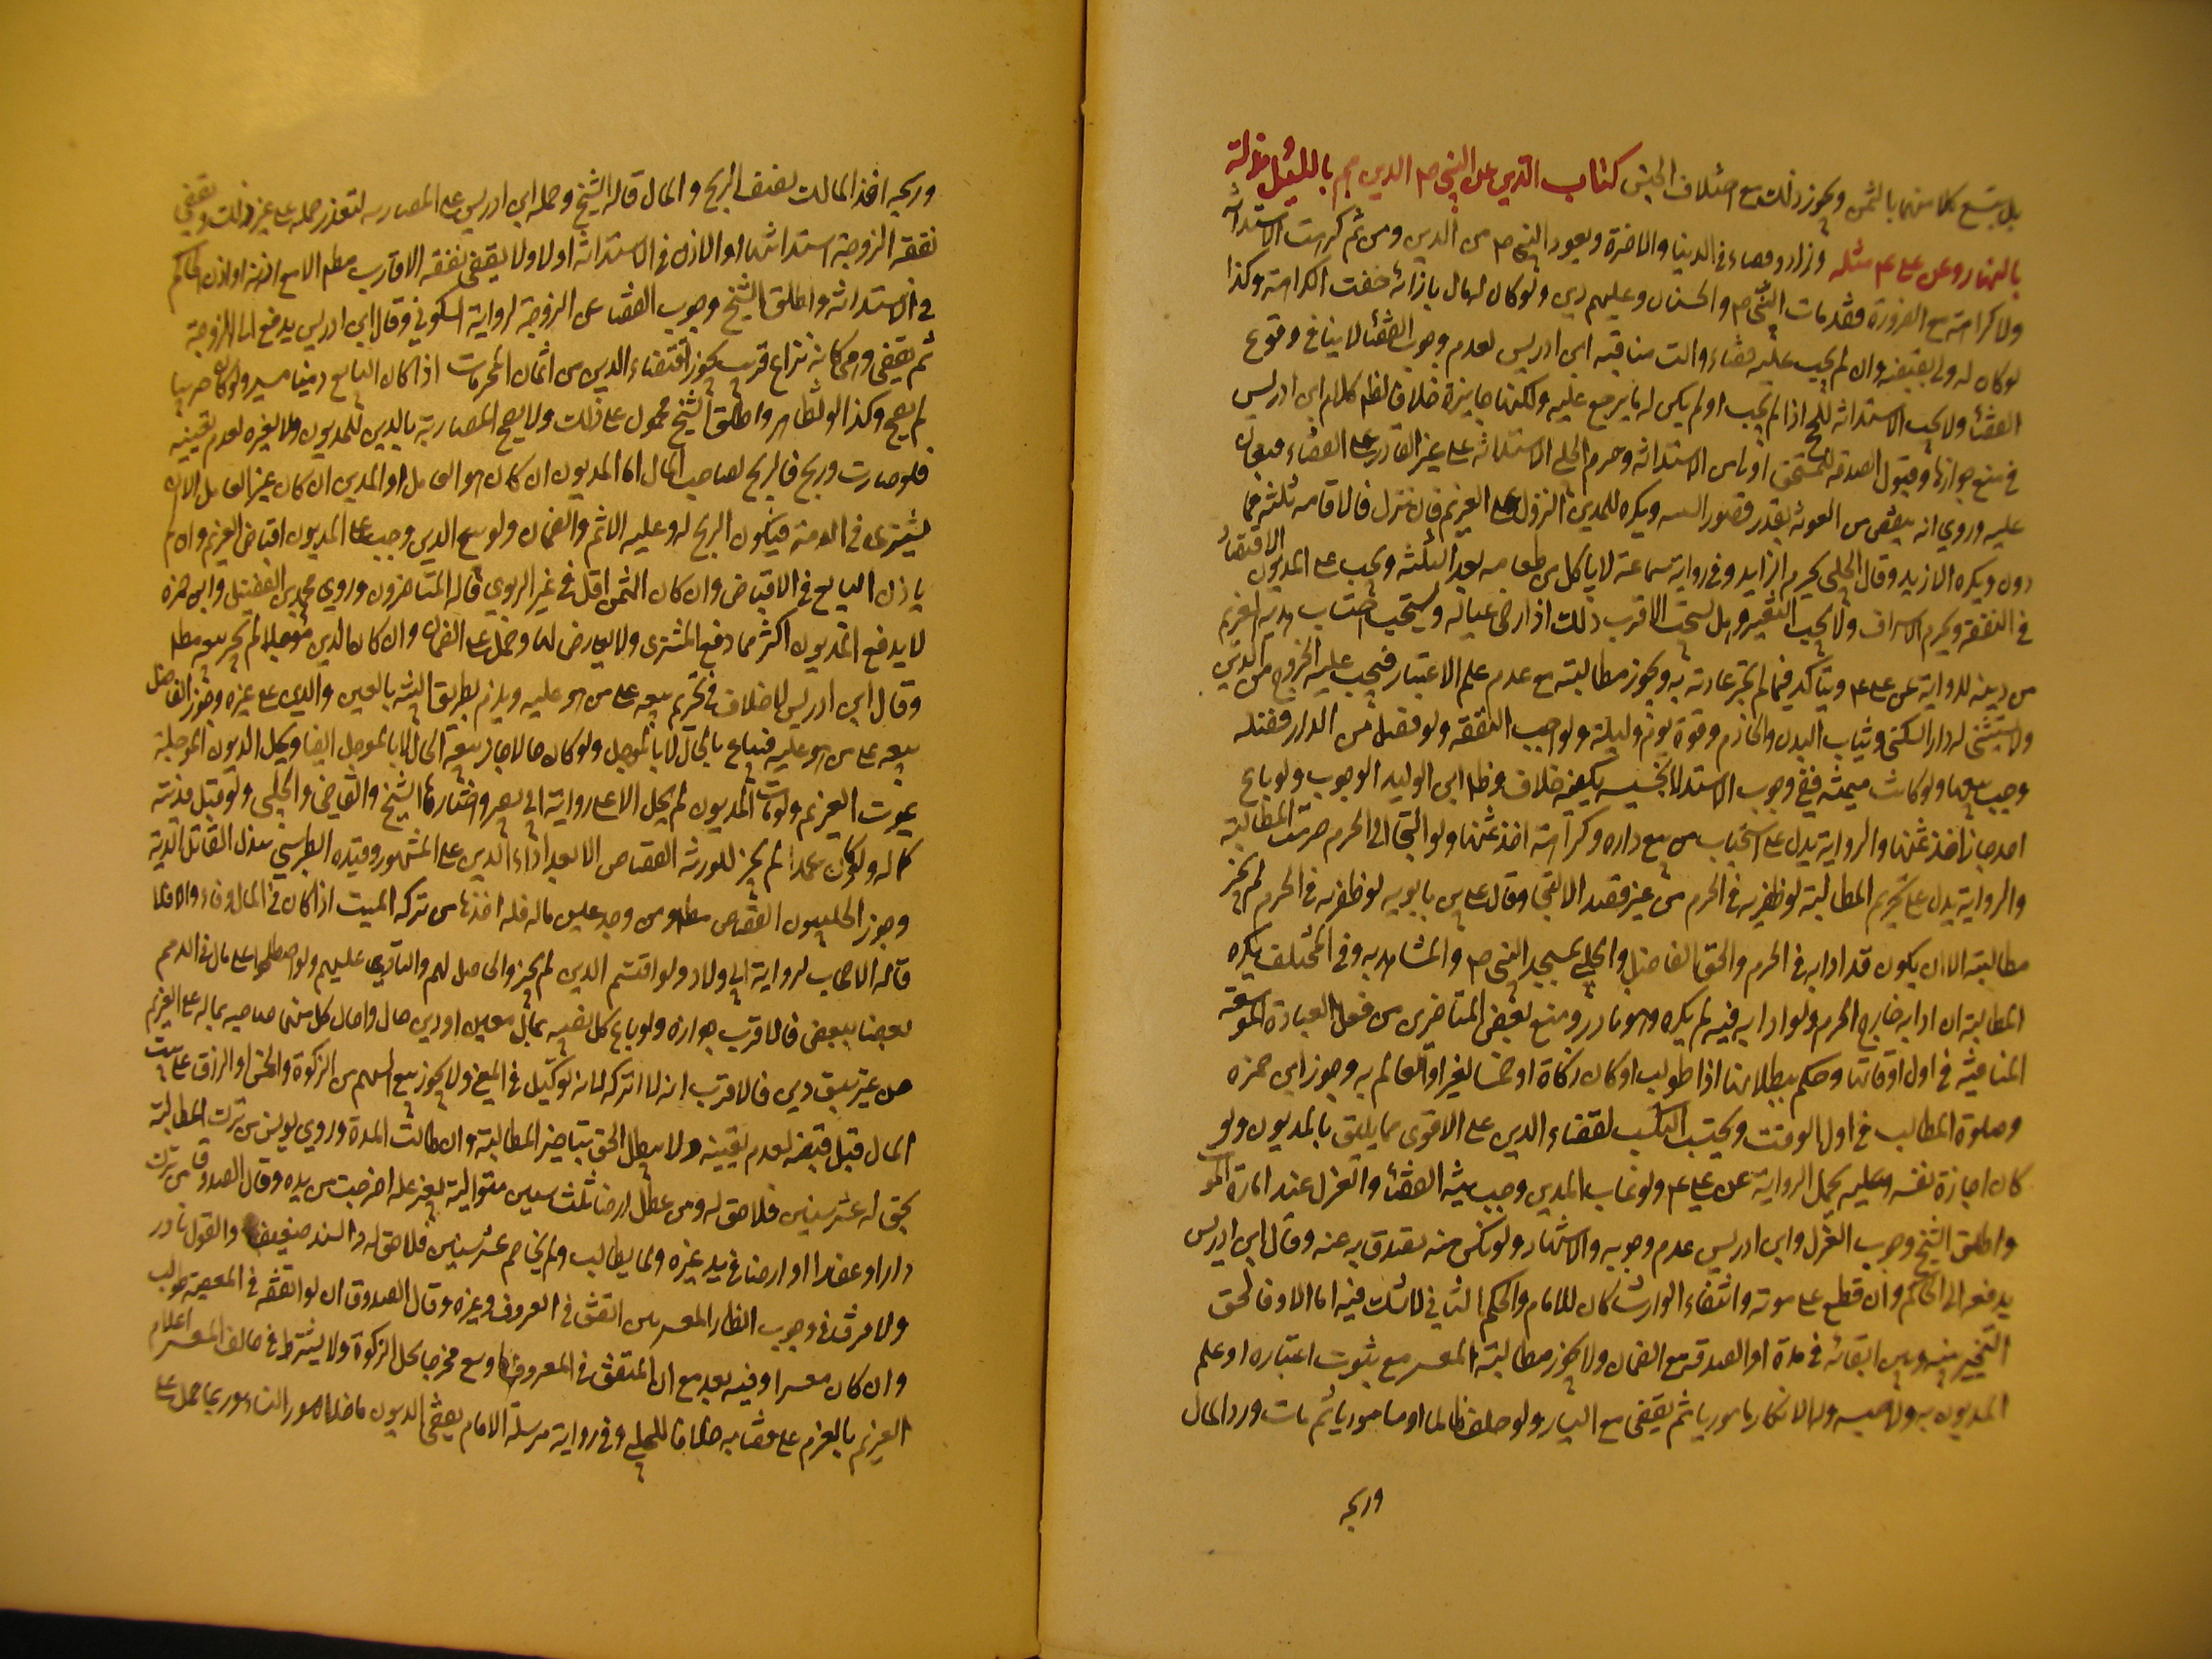 بل يتبع كلا منهما بالثمن ويجوز ذلك مع اختلاف الجنس كتاب الدين عن النبي ص الدين هم بالليل مذلة
بالنهار وعن علي ع مثله وزاد وقضاء في الدنيا والاخرة وتعوذ النبي ص من الدين ومن ثم كرهت الاستدانة
ولا كراهة مع الضرورة فقد مات النبي ص والحسنان وعليهم دين ولو كان له مال بازائه خفت الكراهة وكذا
لو كان له ولي يقضيه وان لم يجب عليه قضاءه والت مناقبه ابن ادريس لعدم وجوب القضاء لا ينافي وقوع
القضاء ولا يجب الاستدانة للحج اذا لم يجب او لم يكن له ما يرجع عليه ولكنها جايزة خلافا لظ كلام ابن ادريس
في منع جوازها وقبول الصدقة للمستحق اولى من الاستدانة وحرم الحلبي الاستدانة على غير القادر على القضاء فيعان
عليه وروي انه ينقص من العونة بقدر قصور النية ويكره للمدين النزول على الغريم فان نزل فالاقامة ثلثة فما
دون ويكره الازيد وقال الحلبي يحرم الزايد وفي رواية سماعة لا ياكل من طعامه بعد الثلثة ويجب على المديون الاقتصاد
في النفقة ويحرم الاسراف ولا يجب التقتير وهل يستحب الاقرب ذلك اذا رضي عياله ويستحب احتساب هدية الغريم
من دينه للرواية عن علي ع ويتاكد فيما لم تجر عادته به ويجوز مطالبته مع عدم علم الاعتبار فيجب عليه الخروج من الدين
ولا يستثنى له دار السكنى وثياب البدن والخادم وقوة يوم وليلة ولواجب النفقة ولو فضل من الدار فضلة
وجب بيعها ولو كانت ثمينة ففي وجوب الاستدلال بخسيسة يكفيه خلاف وظ ابن الوليد الوجوب ولو باع
احد جاز اخذ ثمنها والرواية يدل على استحباب من بيع داره وكراهة اخذ ثمنها ولو التجأ الى الحرم حرمت المطالبة
والرواية يدل على تحريم المطالبة لو ظفر به في الحرم من غير قصد الالتجاء وقال علي بن بابويه لو ظفر به في الحرم لم يجز
مطالبته الا ان يكون قد ادانه في الحرم والحق الفاضل والحلبي مسجد النبي ص والمشاهد به وفي المختلف يكره
المطالبة ان ادانه خارج الحرم ولو ادانه فيه لم يكره وهو نادر ومنع بعض المتاخرين من فعل العبادة الموسعة
المنافية في اول اوقاتها وحكم ببطلانها اذا طولب او كان زكاة او خمسا لغير او لعالم به وجوز ابن حمزة
وصلوة المطالب في اول الوقت ويجب التكسب لقضاء الدين على الاقوى مما يليق بالمديون ولو
كان اجارة نفسه وعليه يحمل الرواية عن علي ع ولو غاب المدين وجب نية القضاء والعزل عند امارة الموت
واطلق الشيخ وجوب العزل وابن ادريس عدم وجوبه والاشهاد ولو نكس منه تصدق به عنه وقال ابن ادريس
يدفعه الى الحاكم وان قطع على موته وانتفاء الوارث كان للامام والحكم الثاني لا شك فيه اما الاول فالحق
التخيير بينه وبين ابقائه في مدة او الصدقة مع الضمان ولا يجوز مطالبة المعسر مع ثبوت اعتباره او علم
المديون به ولا حبسه وله الانكار ناويا ثم يقضي مع اليسار ولو حلف ظالما او مات ورد المال
وربحه
وربحه اخذ المالك نصف الربح والمال قاله الشيخ وحمله ابن ادريس على المضاربة لتعذر حمله على غير ذلك ويقضي
نفقة الزوجة استدانتها او الاذن في الاستدانة اولا ولا يقضي نفقة الاقارب مطلقا الا مع اذنه او اذن الحاكم
في الاستدانة واطلق الشيخ وجوب القضاء عن الزوجة لرواية السكوني وقال ابن ادريس يدفع اما للزوجة
ثم يقضي وامكانه نزاع قريب يجوز اقتضاء الدين من اثمان المحرمات اذا كان البايع ذميا مستترا ولو كان حربيا
لم يصح وكذا لو تظاهر واطلاق الشيخ محمول على ذلك ولا يصح المضاربة بالدين للمديون ولا لغيره لعدم تعينه
فلو ضارب وربح فالربح لصاحب المال اما المديون ان كان هو العامل او المدين ان كان غير العامل الا ان
يشتري في الذمة فيكون الربح له وعليه الاثم والضمان ولو بيع الدين وجب على المديون اقباض الغريم وان لم
ياذن البايع في الاقباض وان كان الثمن اقل في غير الربوي قاله المتاخرون وروي محمد بن الفضيل وابي حمزة
لا يدفع المديون اكثر مما دفع المشتري ولا معارض لها وحمل على الضمان وان كان الدين مؤجلا لم يجز بيعه مطلقا
وقال ابن ادريس لا خلاف في تحريم بيعه على من هو عليه ويلزم بطريق البتة بالعين والدين على غيره وجوز الفاضل
بيعه على من هو عليه فيباع بالحال لا بالمؤجل ولو كان حالا جاز بيعه الحال لا بالمؤجل ايضا ويحل الديون المؤجلة
بموت الغريم ولو مات المديون لم يحل الا على رواية ابي بصير واختارها الشيخ والقاضي والحلبي ولو قبل فديته
كما له ولو كان عمدا لم يجز للورثة القصاص الا بعد اداء الدين على المشهور وقيده الطبرسي ببذل القاتل الدية
وجوز الحلبيون القصاص مطلقا ومن وجد عين ماله فله اخذها من تركة الميت اذا كان في المال وفاء والا فلا
قاله الاصحاب لرواية ابي ولاد ولو اقتسم الدين لم يجز والحاصل لهم والتاوي عليهم ولو اصطلحوا على مال في الذمم
بعضنا ببعض فالاقرب جوازه ولو باع كل نصيبه بمال معين او دين حال واحال كل منهما صاحبه بماله على الغريم
من غير سبق دين فالاقرب انه لا اتركه لانه توكيل في المعنى ولا يجوز بيع السهم من الزكوة والخمس او الرزق على بيت
المال قبل قبضه لعدم تعينه ولا يبطل الحق بتاخير المطالبة وان طالت المدة وروي يونس من ترك المطالبة
بحق له عشر سنين فلا حق له ومن عطل ارضا ثلث سنين متوالية بغير علة اخرجت من يده وقال الصدوق من ترك
دارا او عقارا او ارضا في يد غيره ولما يطالب ولم يخاصم عشر سنين فلا حق له والسند ضعيف والقول نادر
ولا فرق في وجوب انظار المعسر من انفق في المعروف وغيره وقال الصدوق ان لو انفقه في المعصية طولب
وان كان معسرا وفيه بعد مع ان المنفق في المعروف اوسع مخرجا بحل الزكوة ولا يشترط في حالف المعسر اعلام
الغريم بالعزم على قضائه خلافا للحلبي وفي رواية مرسلة الامام يقضي الديون ما خلا مهور النساء وربما حمل على